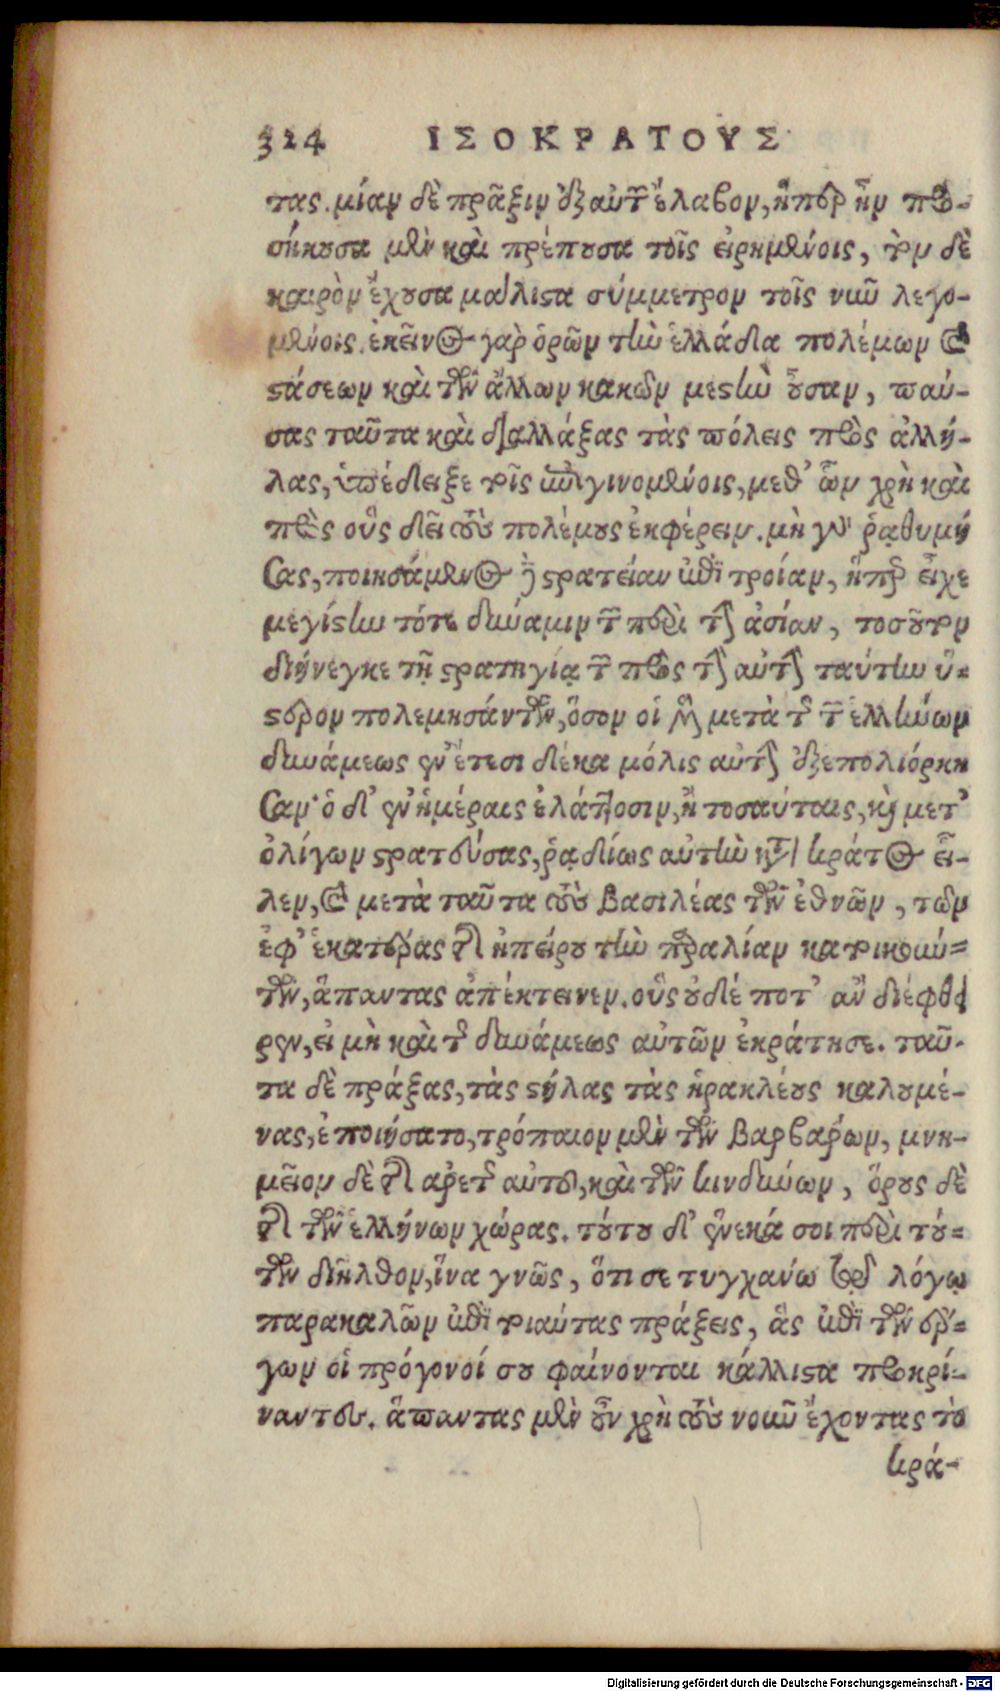 324 ΙΣΟΚΡΑΤΟΥΣ
τας. μίαν δὲ πρᾶξιν ἐξ αὐτῶν ἔλαβον, ἥπερ ἦν προ-
σήκουσα μὲν καὶ πρέπουσα τοῖς εἰρημένοις, τὸν δὲ
καιρὸν ἔχουσα μάλιστα σύμμετρον τοῖς νῦν λεγο-
μένοις. ἐκεῖνος γὰρ ὁρῶν τὴν ἑλλάδα πολέμων καὶ
στάσεων καὶ τῶν ἄλλων κακῶν μεστὴν οὖσαν, παύ-
σας ταῦτα καὶ διαλλάξας τὰς πόλεις πρὸς ἀλλή-
λας, ὑπέδειξε τοῖς ἐπιγινομένοις, μεθ' ὧν χρὴ καὶ
πρὸς οὓς δεῖ τοὺς πολέμους ἐκφέρειν. μὴ γὰρ ῥᾳθυμή
σας, ποιησάμενος γὰρ στρατείαν ἐπὶ τροίαν, ἥπερ εἶχε
μεγίστην τότε δύναμιν τῶν περὶ τὴν ἀσίαν, τοσοῦτον
διήνεγκε τῇ στρατηγίᾳ τῶν πρὸς τὴν αὐτὴν ταύτην ὕ-
στερον πολεμησάντων, ὅσον οἱ μὲν μετὰ τῆς τῶν ἑλλήνων
δυνάμεως ἐν ἔτεσι δέκα μόλις αὐτὴν ἐξεπολιόρκη
σαν· ὁ δ' ἐν ἡμέραις ἐλάττοσιν, ἢ τοσαύταις, καὶ μετ'
ὀλίγων στρατεύσας, ῥᾳδίως αὐτὴν κατὰ κράτος εἷ-
λεν, καὶ μετὰ ταῦτα τοὺς βασιλέας τῶν ἐθνῶν, τῶν
ἐφ' ἑκατέρας τῆς ἠπείρου τὴν παραλίαν κατοικούν-
των, ἅπαντας ἀπέκτεινεν. οὓς οὐδέ ποτ' ἂν διέφθει
ρεν, εἰ μὴ καὶ τῆς δυνάμεως αὐτῶν ἐκράτησε. ταῦ-
τα δὲ πράξας, τὰς στήλας τὰς ἡρακλέους καλουμέ-
νας, ἐποιήσατο, τρόπαιον μὲν τῶν βαρβάρων, μνη-
μεῖον δὲ τῆς ἀρετῆς αὐτοῦ, καὶ τῶν κινδύνων, ὅρους δὲ
τῆς τῶν ἑλλήνων χώρας. τούτου δ' ἕνεκά σοι περὶ τού-
των διῆλθον, ἵνα γνῷς, ὅτι σε τυγχάνω τῷ λόγῳ
παρακαλῶν ἐπὶ τοιαύτας πράξεις, ἃς ἐπὶ τῶν ἔρ-
γων οἱ πρόγονοί σου φαίνονται κάλλιστα προκρί-
ναντες. ἅπαντας μὲν οὖν χρὴ τοὺς νοῦν ἔχοντας τὸ
κρά-
Digitalisierung gefördert durch die Deutsche Forschungsgemeinschaft - DFG